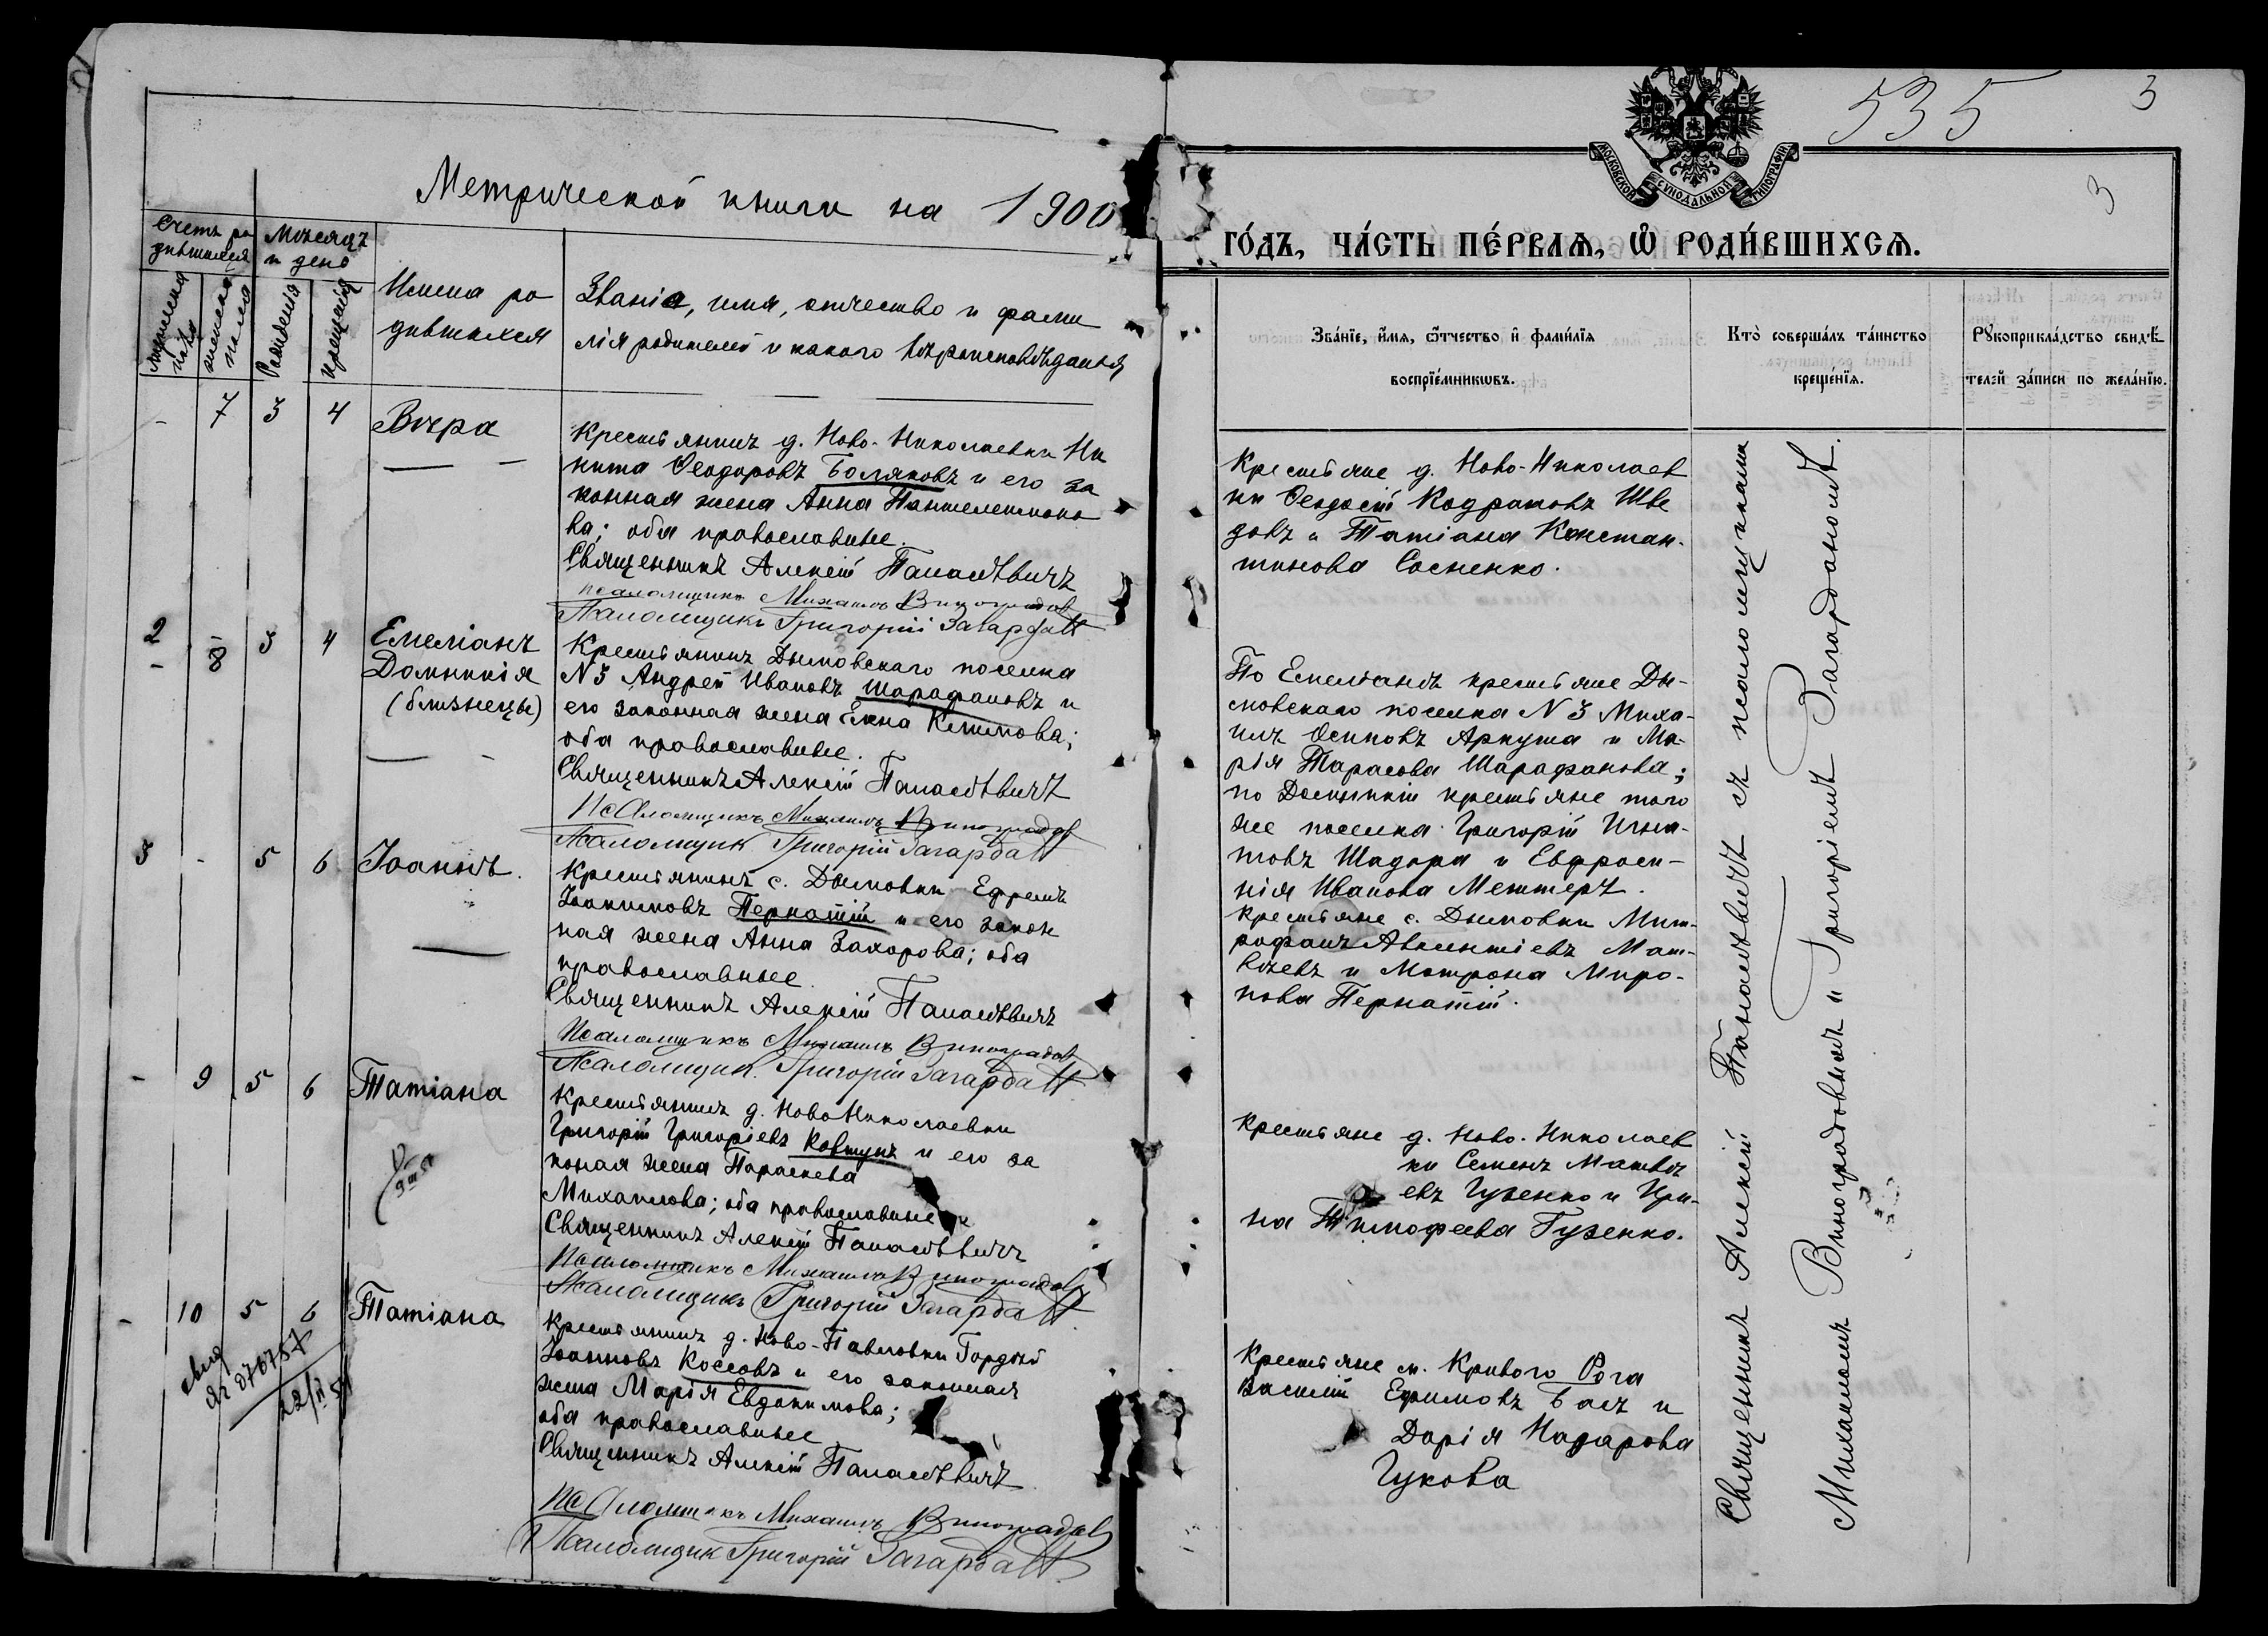 535
3
3
МОСКОВСКОЙ СѴНОДАЛЬНОЙ ТИПОГРАФІИ
Метрической книги на 1900
го́дъ, ча́сть пе́рваѧ, ѽ роди́вшихсѧ.
Счетъ ро
дившихся
Мѣсяцъ
и день
мужеска
пола
женска
пола
Рожденія
крещенія
Имена ро
дившихся
Званіе, имя, отчество и фами
лія родителей и какого вѣроисповѣданія
Зва́нїе, и҆́мѧ, ѻ҆́тчество и҆ фамі́лїѧ
воспрїе́мникѡвъ.
Кто̀ соверша́лъ та́инство
креще́нїѧ.
Рꙋкоприкла́дство свидѣ́-
телей за́писи по жела́нїю.
- 7 3 4 Вѣра
Крестьянинъ д. Ново-Николаевки Ни
кита Ѳеодоровъ Боляковъ и его за
конная жена Анна Пантелеимоно
ва; оба православные.
Священникъ Алексій Панасѣвичъ
псаломщикъ Михаилъ Виноградов
Псаломщикъ Григорій Загардан
Крестьяне д. Ново-Николаев
ки Ѳеодосій Кодратовъ Шве
довъ и Татіана Констан-
тинова Сосненко.
2 - 3 4 Емеліанъ
- 8 Домникія
(близнецы)
Крестьянинъ Дымовскаго поселка
N 3 Андрей Ивановъ Шарафановъ и
его законная жена Елена Климова;
оба православные.
Священникъ Алексій Панасѣвичъ
Псаломщикъ Михаилъ Виноградов
Псаломщик Григорій Загардан
По Емеліанѣ крестьяне Ды-
мовскаго поселка N 3 Миха-
илъ Осиповъ Аркуша и Ма-
рія Тарасова Шарафанова;
по Домникіи крестьяне того
же поселка Григорій Игна-
товъ Шадура и Евфроси-
нія Иванова Меттеръ.
3 - 5 6 Іоаннъ.
Крестьянинъ с. Дымовки Ефремъ
Іоакимовъ Пернатій и его закон
ная жена Анна Захарова; оба
православные.
Священникъ Алексій Панасѣвичъ
Псаломщикъ Михаилъ Виноградов
Псаломщик. Григорій Загардан
Крестьяне с. Дымовки Мит-
рофанъ Авксентіевъ Мат-
вѣевъ и Матрона Миро-
нова Пернатій.
- 9 5 6 Татіана
Крестьянинъ д. Ново Николаевки
Григорій Григоріевъ Ковтунъ и его за
коная жена Параскева
Михаилова; оба православные
Священникъ Алексій Панасѣвичъ
Псаломщикъ Михаилъ Виноградов
Псаломщикъ Григорій Загардан
Крестьяне д. Ново-Николаев
ки Семенъ Матвѣ
евъ Гузенко и Ири-
на Тимофеева Гузенко.
- 10 5 6 Татіана
22/II 51
Крестьянинъ д. Ново-Павловки Гордѣй
Іоанновъ Косовъ и его законная
жена Марія Евдокимова;
оба православные
Священникъ Алексій Панасѣвичъ
Псаломщикъ Михаилъ Виноградов
Псаломщик Григорій Загардан
Крестьяне м. Кривого Рога
Василій Ефимовъ Басъ и
Дарія Назарова
Гукова
Священникъ Алексій Панасѣвичъ съ псаломщиками
Михаиломъ Виноградовымъ и Григоріемъ Загарданомъ.